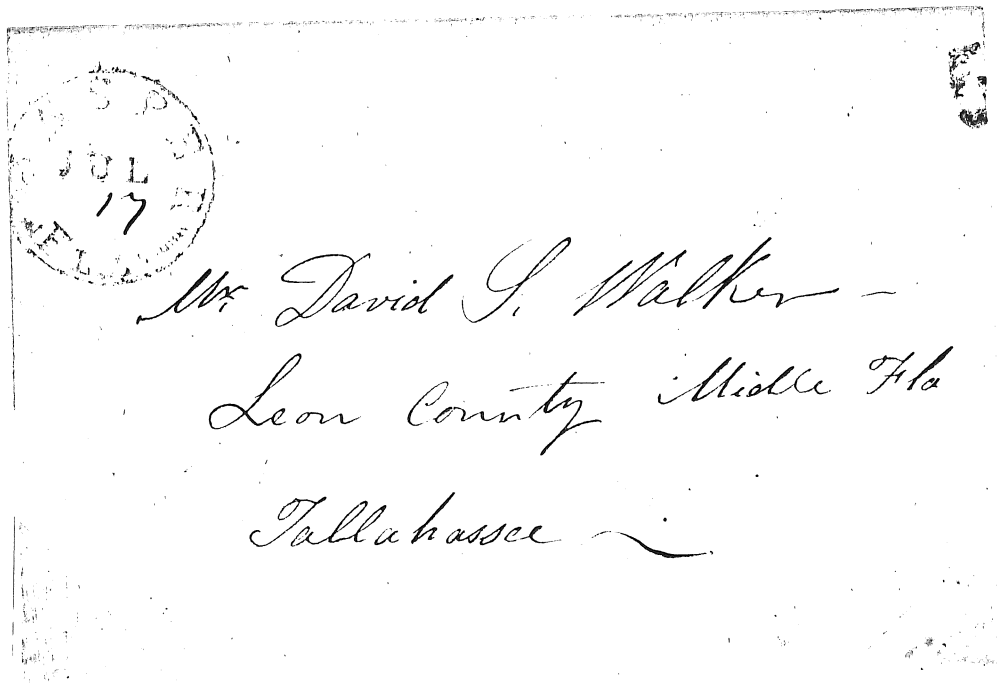 JUL
17
FLA
Mr. David S. Walker –
Leon County Middle Fla
Tallahassee